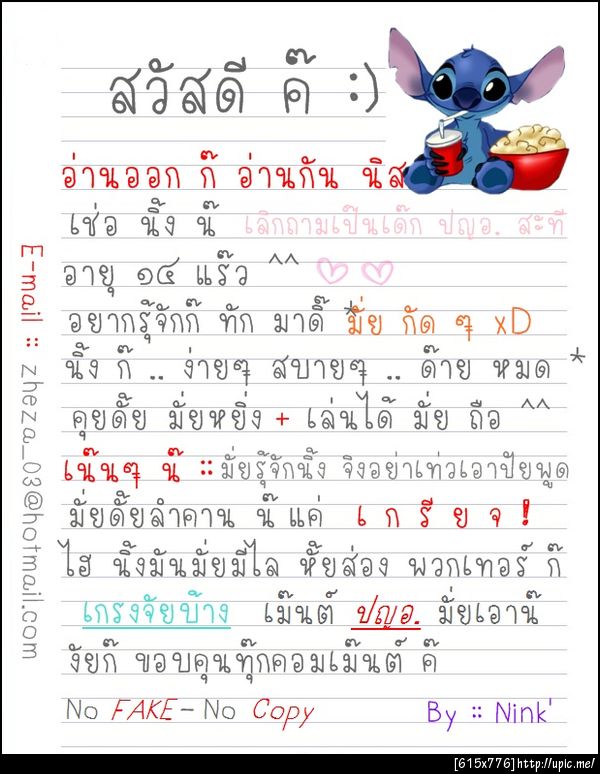 สวัสดี ค๊ :)
อ่านออก ก๊ อ่านกัน นิส
เช่อ นิ้ง น๊ เลิกถามเป๊นเด๊ก ปญอ. สะที
อายุ ๑๔ แร๊ว ^^ ♡ ♡
อยากรุ้จักก๊ ทัก มาดิ๊ * มั่ย กัด ๆ xD
นิ้ง ก๊ .. ง่ายๆ สบายๆ .. ด๊าย หมด *
คุยดั้ย มั่ยหยิ่ง + เล่นได้ มั่ย ถือ ^^
เน๊นๆ น๊ :: มั่ยรุ้จักนิ้ง จิงอย่าเท่วเอาปัยพูด
มั่ยดั้ยลำคาน น๊ แค่ เ ก รี ย จ !
ไฮ นิ้งมันมั่ยมีไล หั้ยส่อง พวกเทอร์ ก๊
เกรงจัยบ้าง เม๊นต์ ปญอ. มั่ยเอาน๊
งัยก๊ ขอบคุนทุ๊กคอมเม๊นต์ ค๊
No FAKE - No Copy By :: Nink'
E-mail :: zheza_03@hotmail.com
[615x776]http://upic.me/